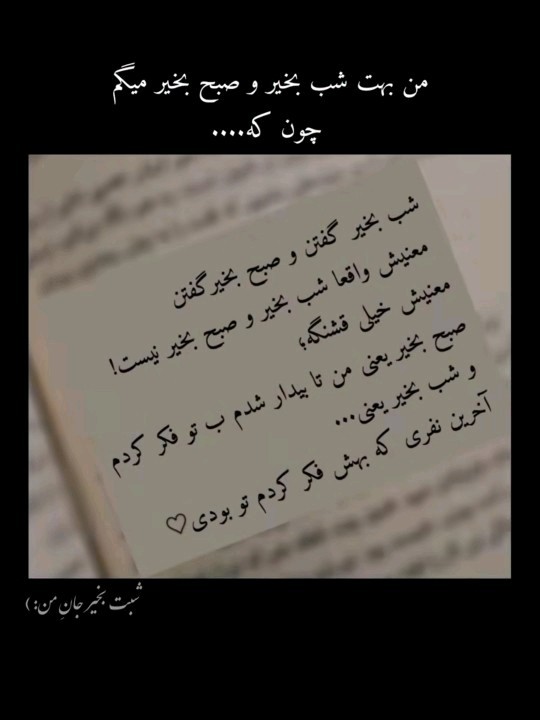 من بهت شب بخیر و صبح بخیر میگم
چون که....
شب بخیر گفتن و صبح بخیرگفتن
معنیش واقعا شب بخیر و صبح بخیر نیست!
معنیش خیلی قشنگه؛
صبح بخیر یعنی من تا بیدار شدم ب تو فکر کردم
و شب بخیر یعنی...
آخرین نفری که بهش فکر کردم تو بودی♡
شبت بخیر جانِ من:)